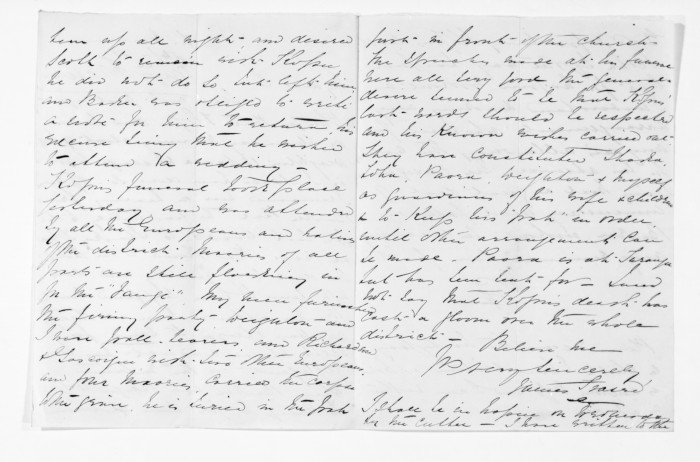 him up all night and desired
Scott to remain with Kopu
he did not do so but left him
and Baker was obliged to write
a note for him to return, his
excuse being that he wished
to attend a wedding —
Kopus funeral took place
yesterday and was attended
by all the Europeans and natives
of the district. Maories of all
parts are still flocking in
for the "Tangi" My men furnished
the firing party Deighton and
I were pall bearers, and Richardson
& Gascoigne with two other Europeans
and four Maories carried the corpse
to the grave, he is buried in the pah
first in front of the church
the speeches made at his funeral
were all very good the general
desire seemed to be that Kopus
last words should be respected
and his known wishes carried out
They have constituted Ihaka,
Paora, Deighton & myself
as guardians of his wife & children
& to keep his "pah" in order
until other arrangement can
be made. Paora is at
but has been sent for — I need
not say that Kopus death has
cast a gloom over the whole
district — Believe me
very sincerely
James Fraser
I shall be in on
for Mr Cutler — I have written to the